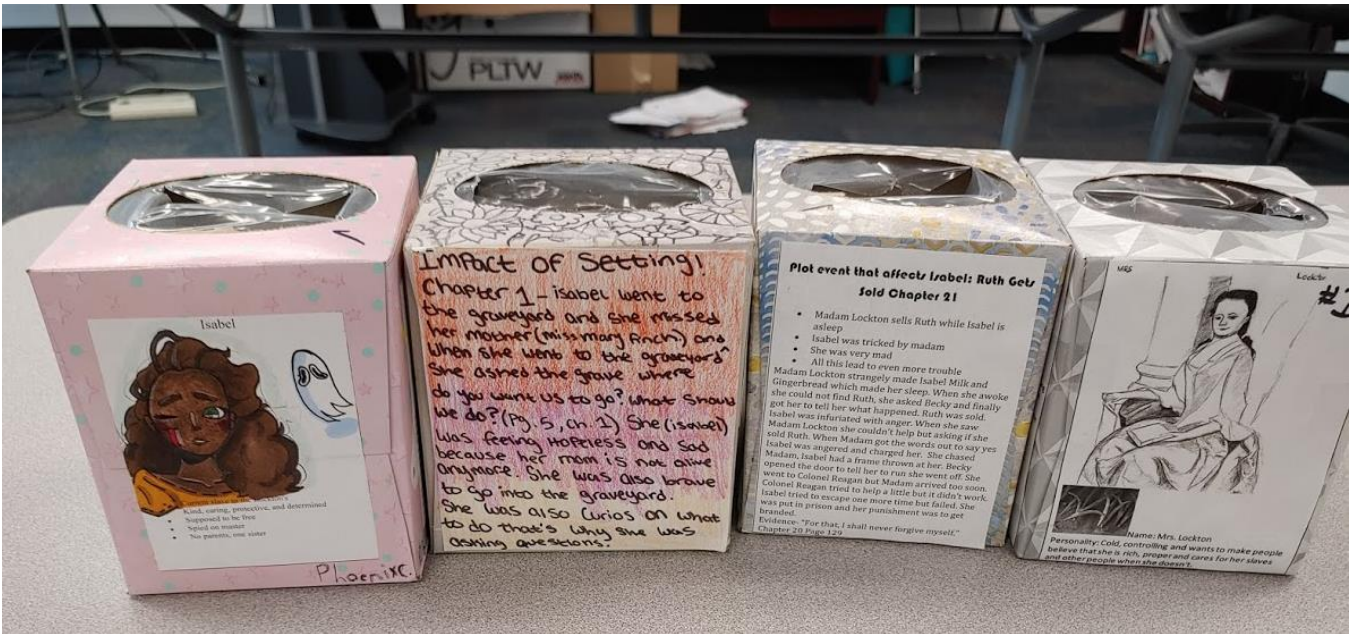 PLTW
Isabel
Kind, caring, protective, and determined
Supposed to be free
Spied on master
No parents, one sister
PhoenixC.
Impact of Setting!
Chapter 1 - isabel went to
the graveyard and she missed
her mother (miss mary Finch) and
when she went to the graveyard
she asked the grave where
do you want us to go? what should
we do? (Pg. 5, ch. 1) She (isabel)
was feeling Hopeless and sad
because her mom is not alive
anymore. She was also brave
to go into the graveyard.
She was also Curios on what
to do that's why she was
asking questions.
Plot event that affects Isabel: Ruth Gets
Sold Chapter 21
Madam Lockton sells Ruth while Isabel is
asleep
Isabel was tricked by madam
She was very mad
All this lead to even more trouble
Madam Lockton strangely made Isabel Milk and
Gingerbread which made her sleep. When she awoke
she could not find Ruth, she asked Becky and finally
got her to tell her what happened. Ruth was sold.
Isabel was infuriated with anger. When she saw
Madam Lockton she couldn't help but asking if she
sold Ruth. When Madam got the words out to say yes
Isabel was angered and charged her. She chased
Madam, Isabel had a frame thrown at her. Becky
opened the door to tell her to run she went off. She
went to Colonel Reagan but Madam arrived too soon.
Colonel Reagan tried to help a little but it didn't work.
Isabel tried to escape one more time but failed. She
was put in prison and her punishment was to get
branded.
Evidence- "For that, I shall never forgive myself."
Chapter 20 Page 129
MRS
Name: Mrs. Lockton
Personality: Cold, controlling and wants to make people
believe that she is rich, proper and cares for her slaves
and other people when she doesn't.